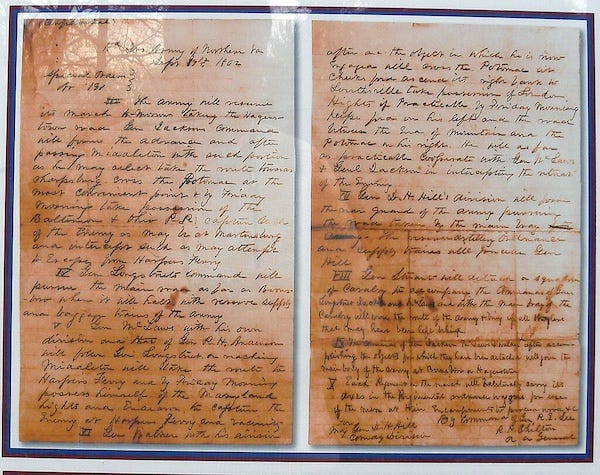 Hd Qrs Army of Northern Va
Sept 9th 1862
Special Orders
No 191
III The Army will resume
its march to-morrow taking the Hagers-
town road Gen Jacksons Command
will form the advance and after
passing Middleton with such portion
as he may select take the route toward
Sharpsburg cross the Potomac at the
most convenient point & by Friday
Morning take possession of the
Baltimore & Ohio R.R. capture such
of the Enemy as may be at Martinsburg
and intercept such as may attempt
to Escape from Harpers Ferry
IV Gen Longstreets command will
pursue the main road as far as Boons-
boro where it will halt with reserve supply
and baggage trains of the army
V Gen McLaws with his own
division and that of Gen R. H. Anderson
will follow Gen Longstreet on reaching
Middleton will take the route to
Harpers Ferry and by Friday Morning
possess himself of the Maryland
hights and Endeavor to capture the
Enemy at Harpers Ferry and vicinity
VI Gen Walker with his division
after the object in which he is now
Engaged will cross the Potomac at
Cheeks ford ascend its right bank to
Lovettsville take possession of Loudon
Hights if Practicable by Friday Morning
Keyes ford on his left and the road
between the End of mountain and the
Potomac on his right. He will as far
as practicable cooperate with Gen McLaws
& Genl Jackson in intercepting the retreat
of the Enemy
VII Gen D. H. Hill's division will form
the rear guard of the army pursuing
the road taken by the main body
The reserve artillery Ordnance
and supply trains will precede Gen
Hill
VIII Gen Stuart will detach a squadron
of Cavalry to accompany the Commands of Gen
Longstreet Jackson & McLaws and with the main body of the
Cavalry will cover the route of the Army & bring up all stragglers
that may have been left behind
IX The commands of Gen Jackson McLaws & Walker after accom-
plishing the objects for which they have been detached will join the
main body of the army at Boonsboro or Hagerstown
X Each Regiment on the march will habitually carry its
axes in the Regimental ordnance wagons for use
of the men at their Encampments to procure wood &c
By Command of Gen R. E. Lee
For
Maj Gen D H Hill
Comdg Division
R. H. Chilton
A A General